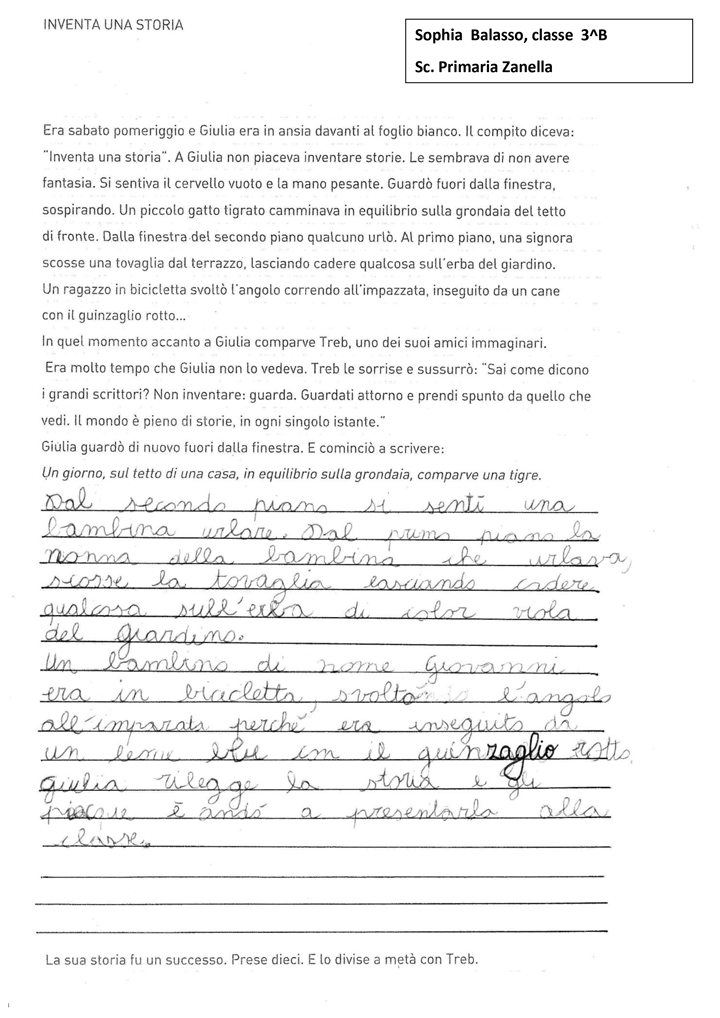 INVENTA UNA STORIA
Sophia Balasso, classe 3^B
Sc. Primaria Zanella
Era sabato pomeriggio e Giulia era in ansia davanti al foglio bianco. Il compito diceva:
"Inventa una storia". A Giulia non piaceva inventare storie. Le sembrava di non avere
fantasia. Si sentiva il cervello vuoto e la mano pesante. Guardò fuori dalla finestra,
sospirando. Un piccolo gatto tigrato camminava in equilibrio sulla grondaia del tetto
di fronte. Dalla finestra del secondo piano qualcuno urlò. Al primo piano, una signora
scosse una tovaglia dal terrazzo, lasciando cadere qualcosa sull'erba del giardino.
Un ragazzo in bicicletta svoltò l'angolo correndo all'impazzata, inseguito da un cane
con il guinzaglio rotto...
In quel momento accanto a Giulia comparve Treb, uno dei suoi amici immaginari.
Era molto tempo che Giulia non lo vedeva. Treb le sorrise e sussurrò: "Sai come dicono
i grandi scrittori? Non inventare: guarda. Guardati attorno e prendi spunto da quello che
vedi. Il mondo è pieno di storie, in ogni singolo istante."
Giulia guardò di nuovo fuori dalla finestra. E cominciò a scrivere:
Un giorno, sul tetto di una casa, in equilibrio sulla grondaia, comparve una tigre.
Dal secondo piano si sentì una
bambina urlare. Dal primo piano la
nonna della bambina che urlava,
scosse la tovaglia lasciando cadere
qualcosa sull'erba di color viola
del giardino.
Un bambino di nome Giovanni
era in bicicletta, svoltò l'angolo
all'imparata perché era inseguito da
un leone blu con il guinzaglio rotto.
Giulia rilegge la storia e gli
piacque è andò a presentarla alla
classe.
La sua storia fu un successo. Prese dieci. E lo divise a metà con Treb.